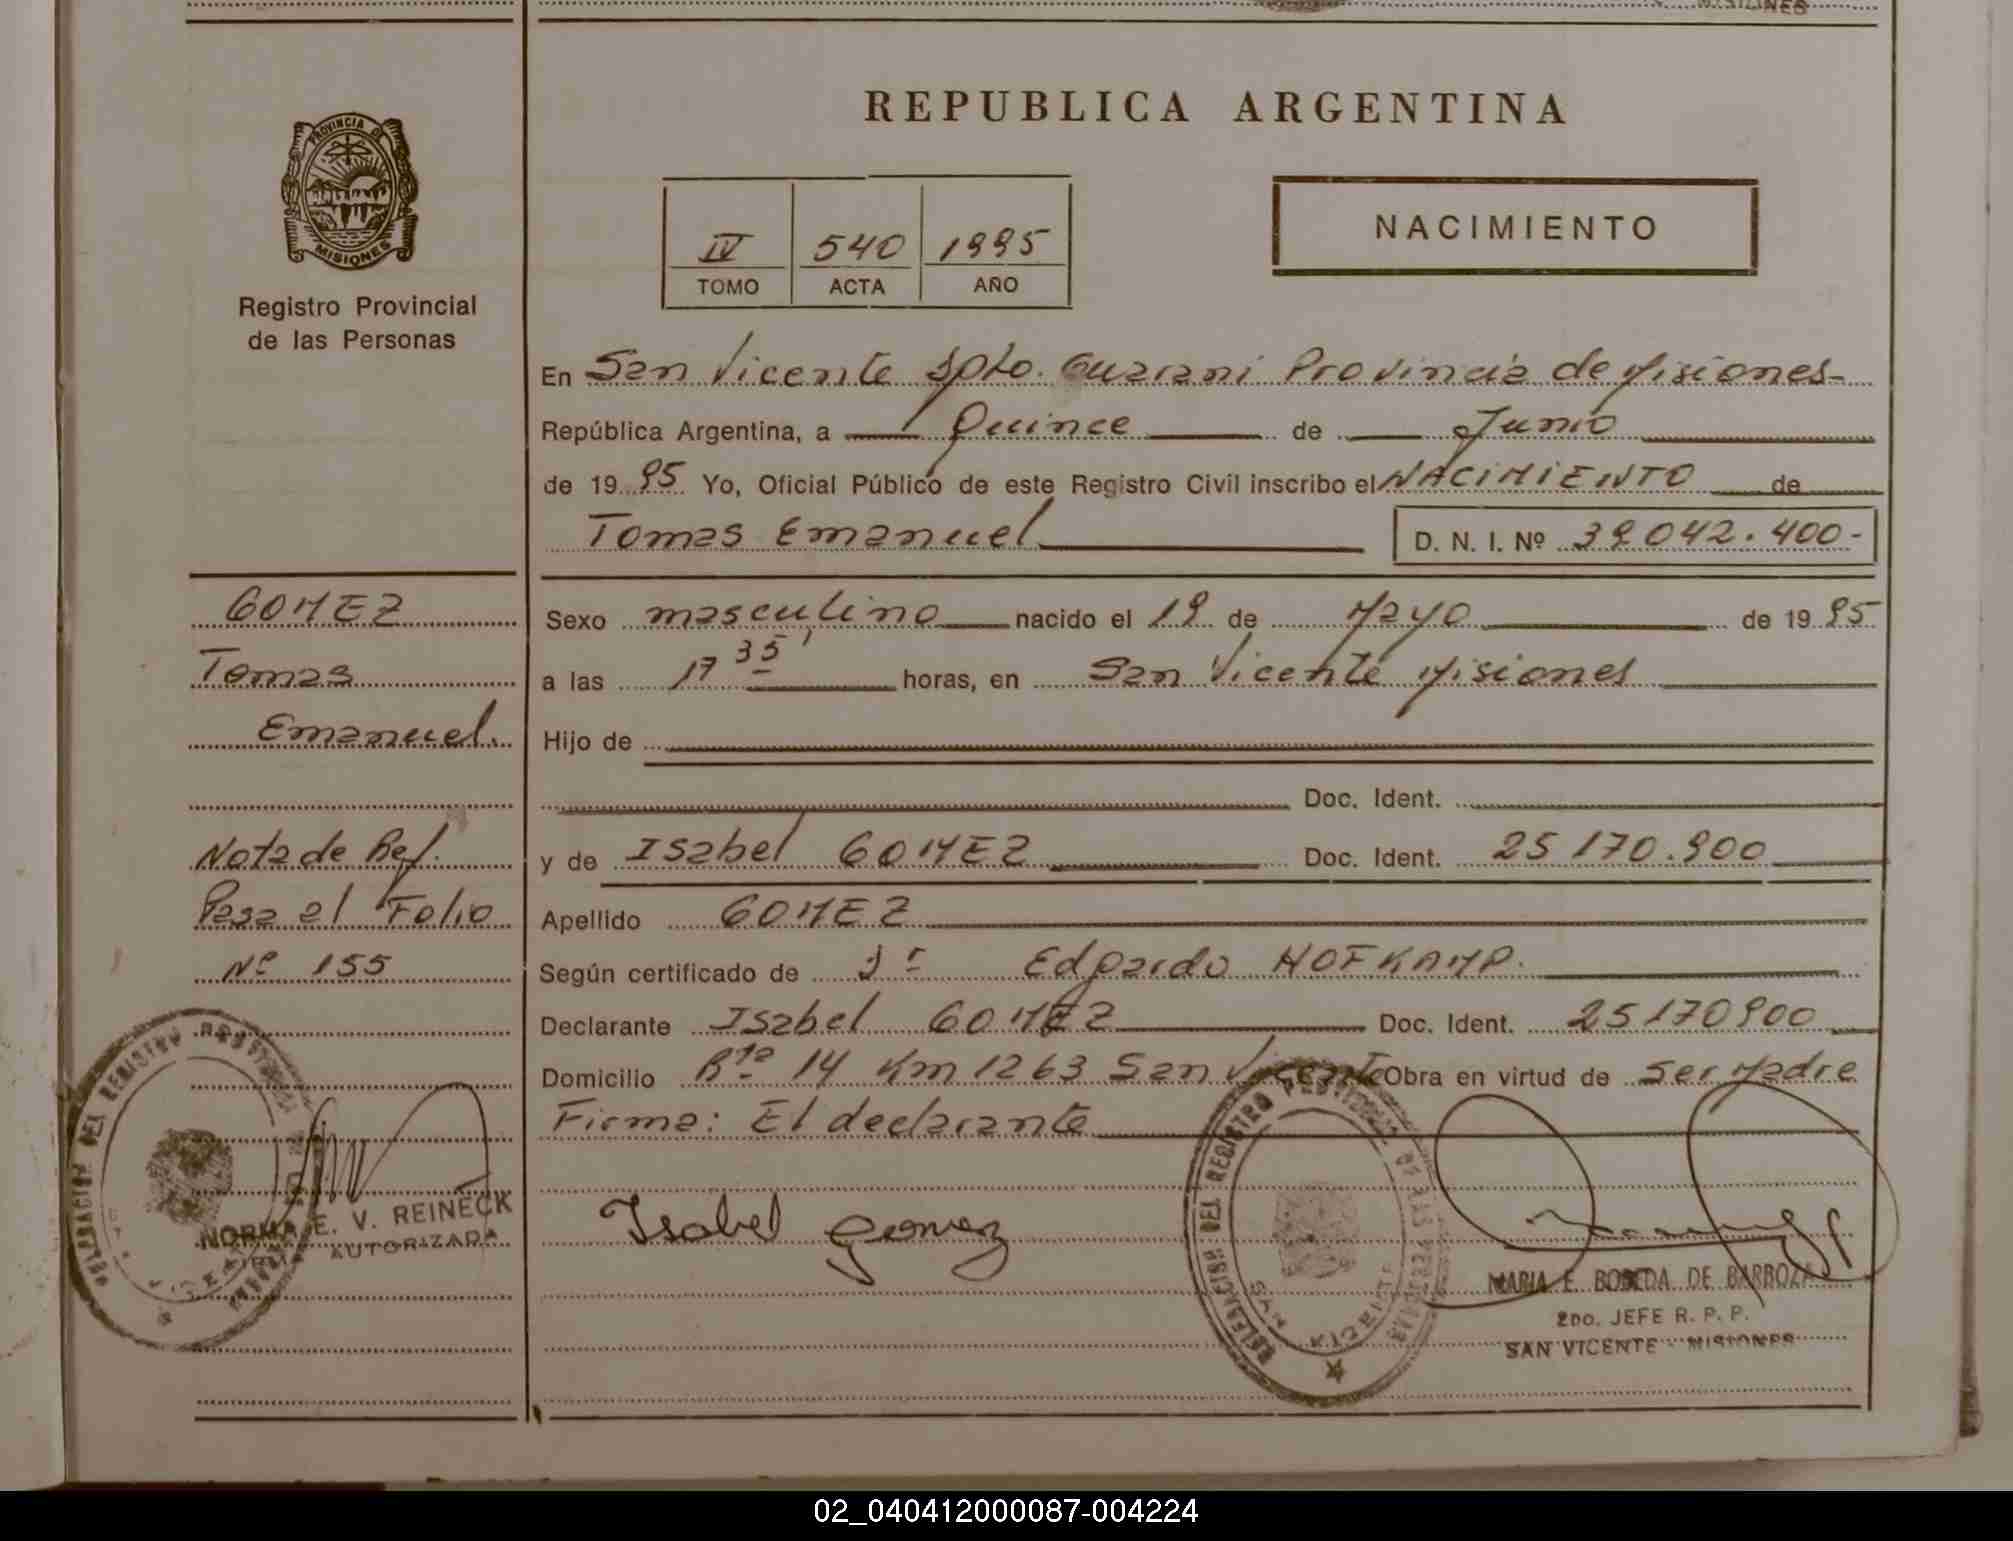 REPUBLICA ARGENTINA
PROVINCIA DE
MISIONES
Registro Provincial
de las Personas
IV 540 1995
TOMO ACTA AÑO
NACIMIENTO
En San Vicente Dpto. Guarani Provincia de Misiones-
República Argentina, a Quince de Junio
de 1995 Yo, Oficial Público de este Registro Civil inscribo el NACIMIENTO de
Tomas Emanuel D. N. I. Nº 39.042.400-
GOMEZ
Tomas
Emanuel.
Nota de Ref.
Pasa al Folio
Nº 155
Sexo masculino nacido el 19 de Mayo de 1995
a las 17 35' horas, en San Vicente Misiones
Hijo de
Doc. Ident.
y de Isabel GOMEZ Doc. Ident. 25 170.900
Apellido GOMEZ
Según certificado de Dr Edgardo HOFKAMP.
Declarante Isabel GOMEZ Doc. Ident. 25170900
Domicilio Rta 14 Km 1263 San Vicente Obra en virtud de ser Madre
Firma: El declarante
Isabel gomez
NORMA E. V. REINECK
AUTORIZADA
DELEGACION DEL REGISTRO PROVINCIAL DE LAS PERSONAS
SAN VICENTE
MARIA E. BOBEDA DE BARBOZA
2DO. JEFE R. P. P.
SAN VICENTE - MISIONES
02_040412000087-004224